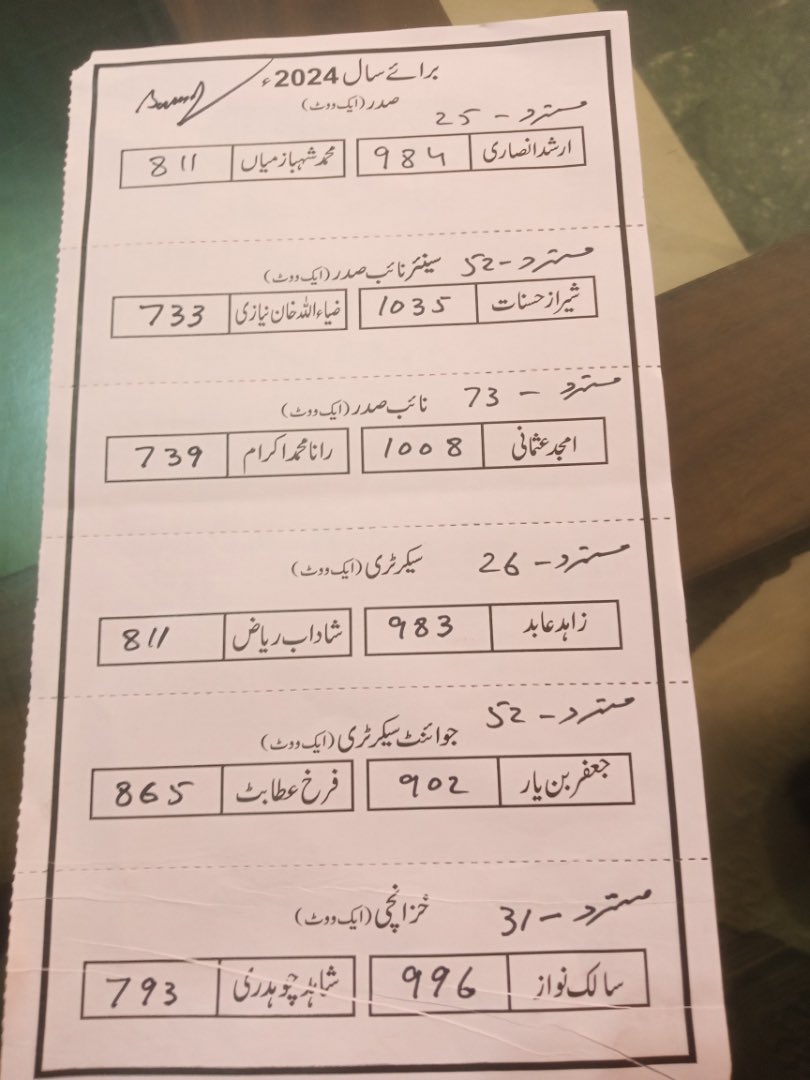 برائے سال 2024ء
صدر (ایک ووٹ) مسترد - 25
ارشد انصاری 984 محمد شہباز میاں 811
سینئر نائب صدر (ایک ووٹ) مسترد - 52
شیراز حسنات 1035 ضیاء اللہ خان نیازی 733
نائب صدر (ایک ووٹ) مسترد - 73
امجد عثمانی 1008 رانا محمد اکرام 739
سیکرٹری (ایک ووٹ) مسترد - 26
زاہد عابد 983 شاداب ریاض 811
جوائنٹ سیکرٹری (ایک ووٹ) مسترد - 52
جعفر بن یار 902 فرخ عطا بٹ 865
خزانچی (ایک ووٹ) مسترد - 31
سالک نواز 996 شاہد چوہدری 793